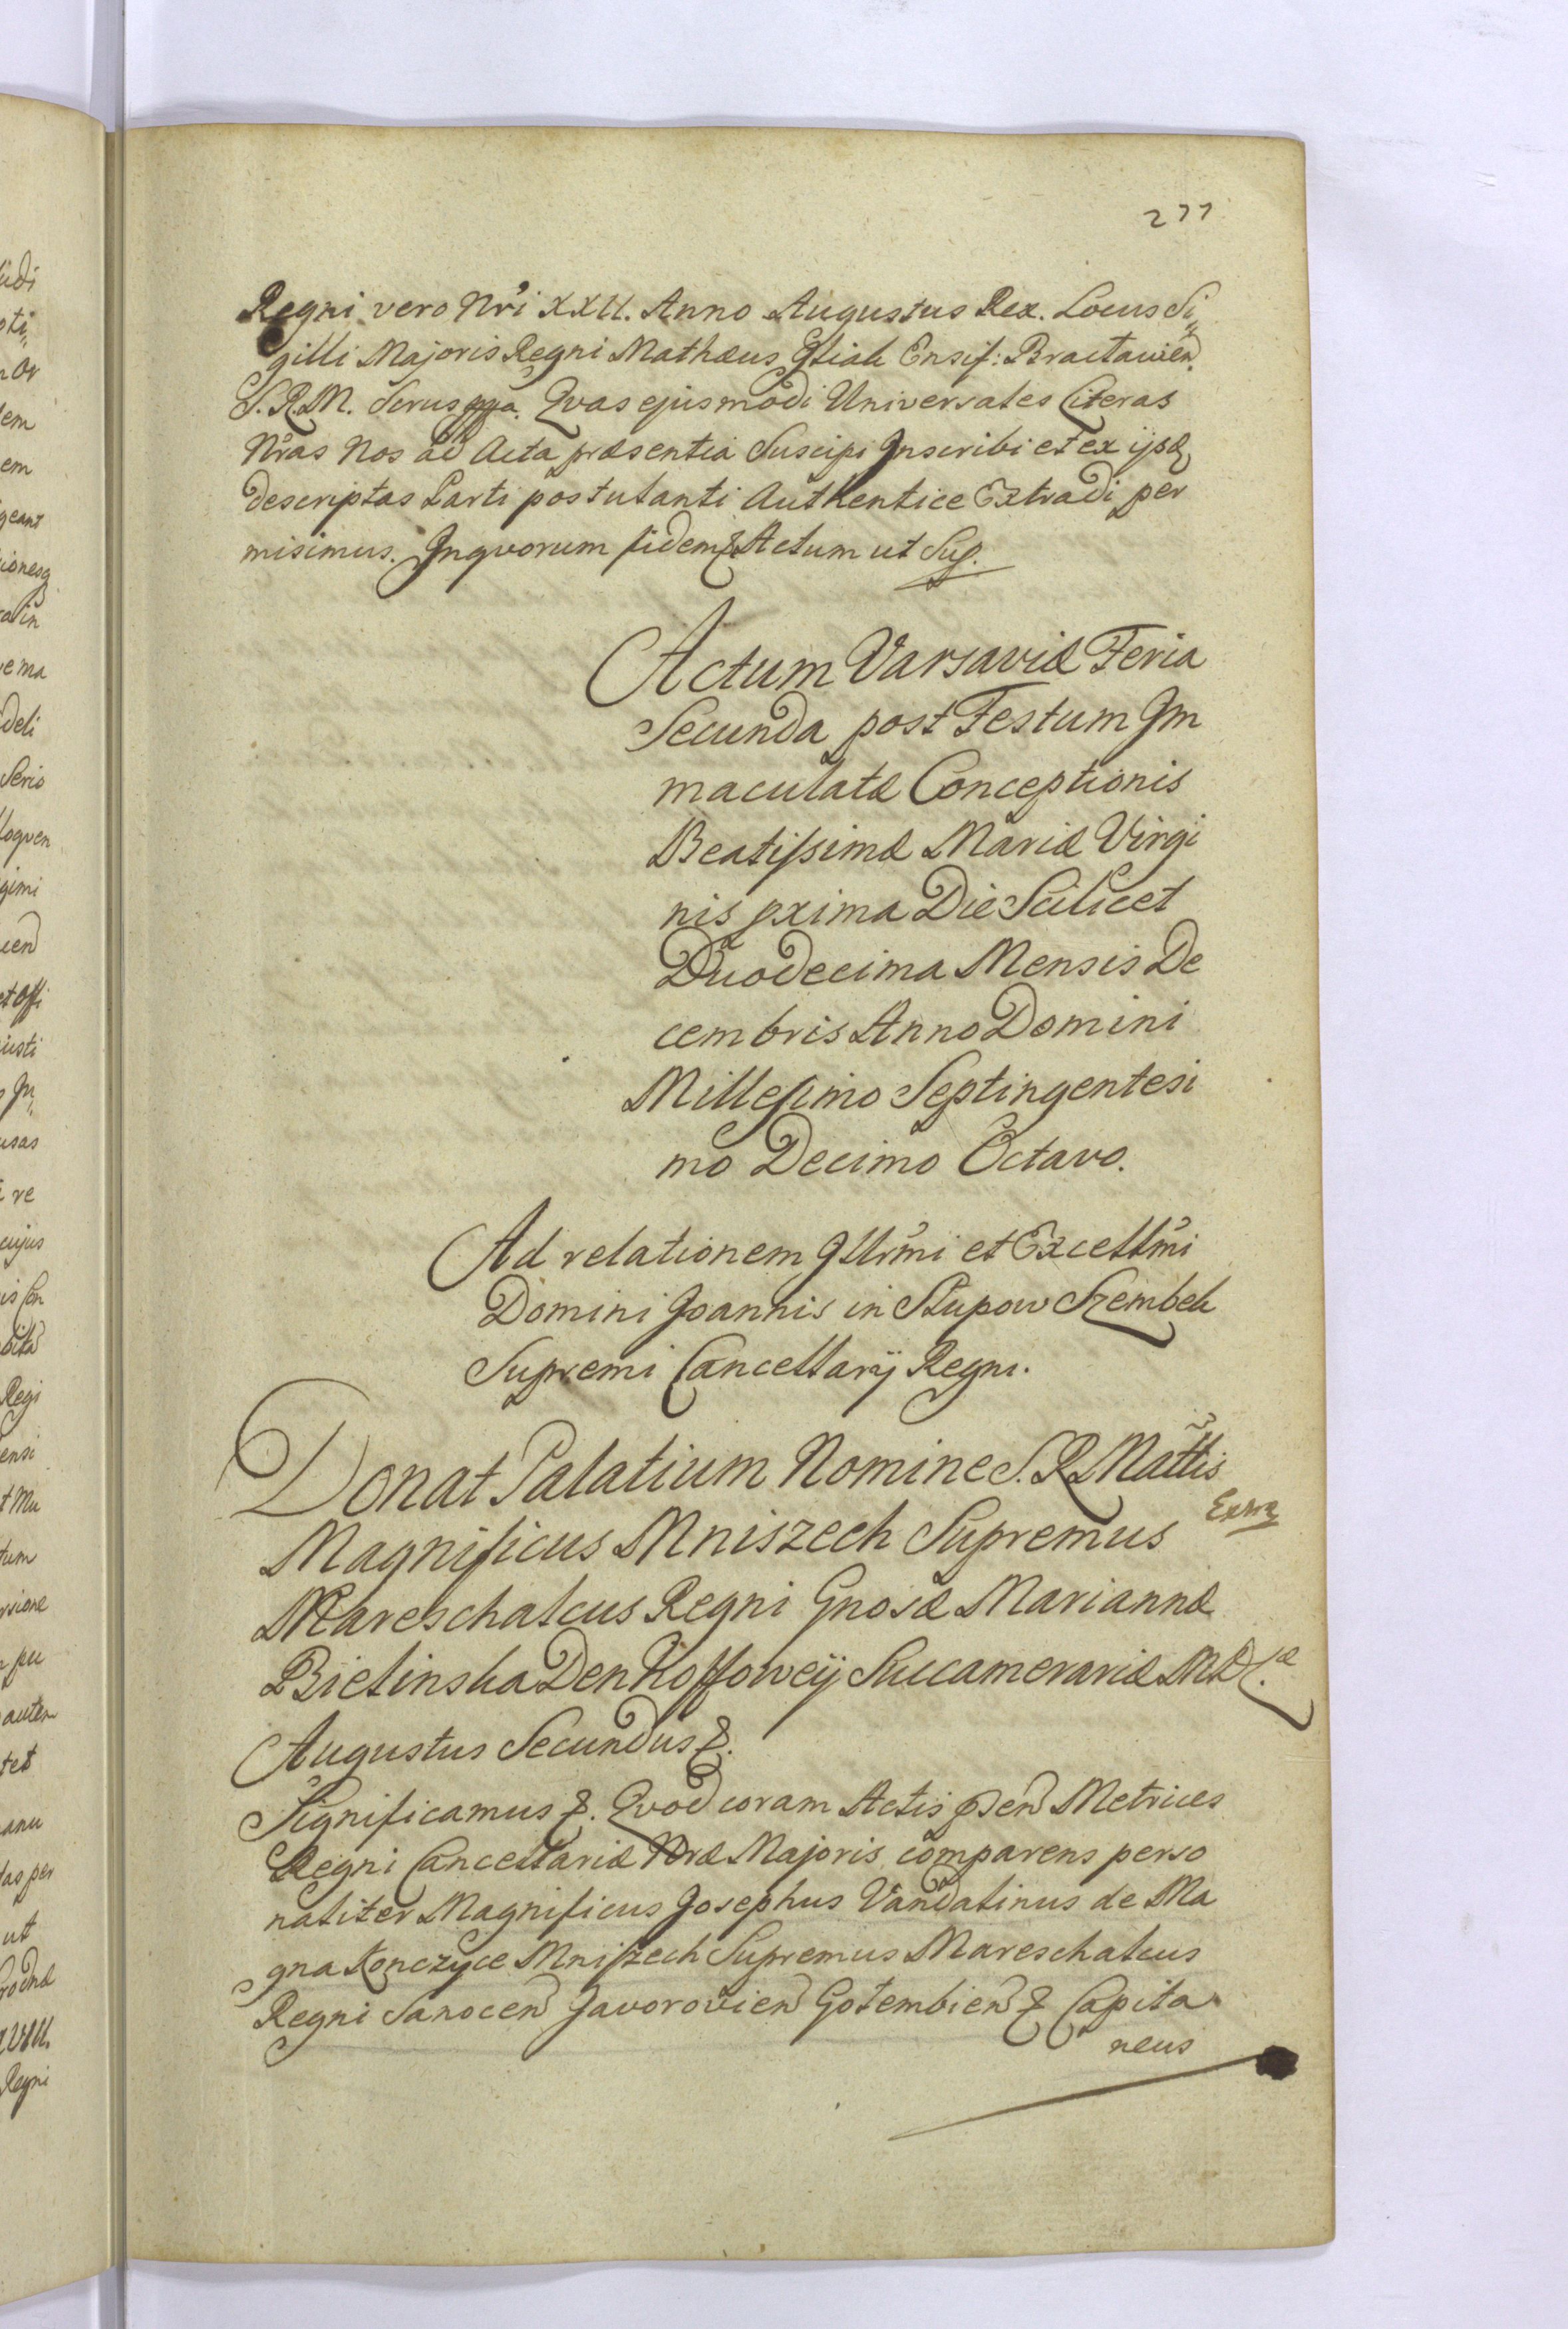 277
Regni vero Nr̃i XXII. Anno Augustus Rex. Locus Si„
gilli Majoris Regni Mathæus Ensif: Bractavien.
S.R.M. Srius Qvas ejusmodi Universales Literas
Nr̃as Nos ad Acta præsentia Suscipi Inscribi et ex ijsd
descriptas Parti postulanti Authentice Extradi per
misimus. Inqvorum fidem & Actum ut Sup.
Actum Varsaviæ Feria
Secunda post Festum Im
maculatæ Conceptionis
Beatissimæ Mariæ Virgi
nis pxima Die Scilicet
Duodecima Mensis De
cembris Anno Domini
Millesimo Septingentesi
mo Decimo Octavo.
Ad relationem Illr̃mi et Excellm̃i
Domini Joannis in Słupow Szembek
Supremi Cancellarij Regni.
Donat Palatium Nomine S.R. Mattis
Extra
Magnificus Mniszech Supremus
Mareschalcus Regni Gnosæ Mariannæ
Bielinska Denhoffowey Succamerariæ M.D.L.æ
Augustus Secundus &.
Significamus &. Qvod coram Actis psen Metrices
Regni Cancellariæ Nræ Majoris comparens perso
naliter Magnificus Josephus Vandalinus de Ma
gna Konczyce Mniszech Supremus Mareschalcus
Regni Sanocen Javorovien Gołembien & Capita
neus